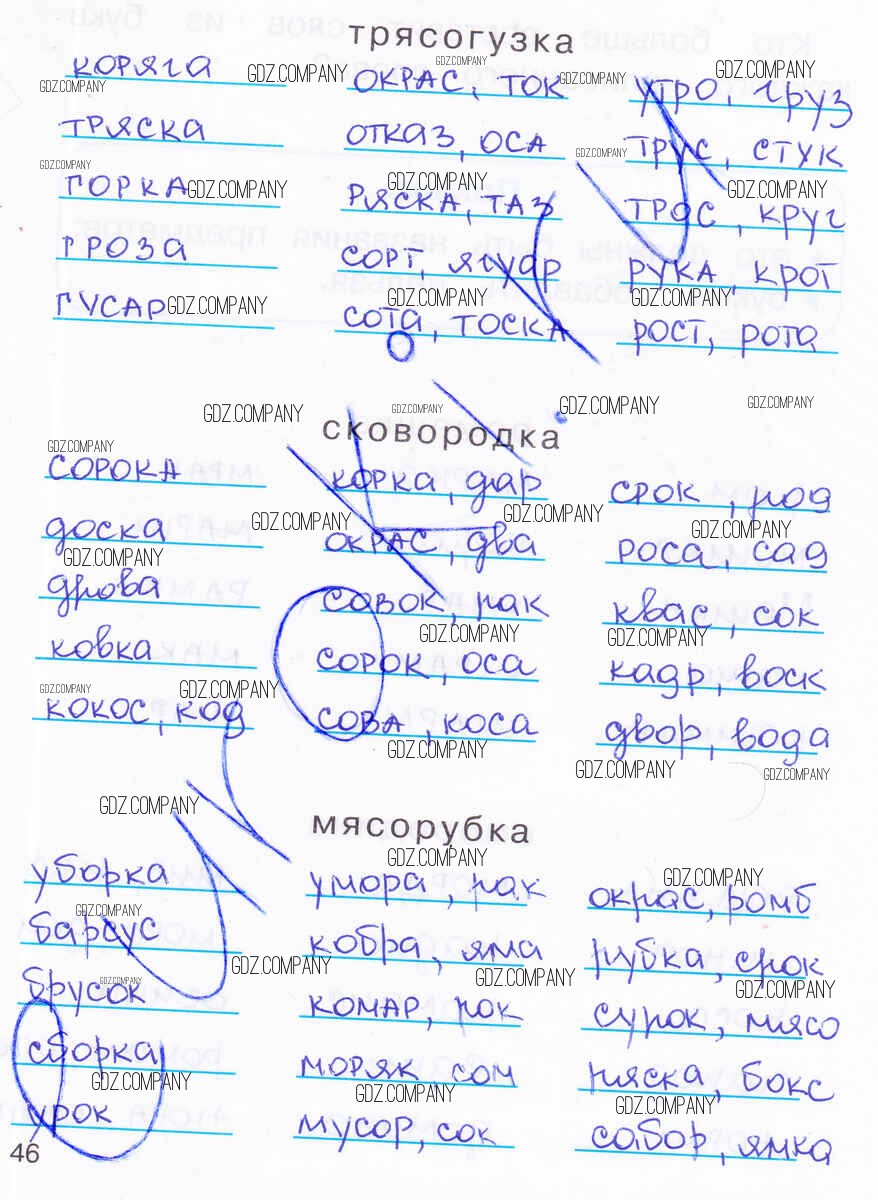 трясогузка
коряга
окрас, ток
утро, груз
тряска
отказ, оса
трус, стук
горка
ряска, таз
трос, круг
гроза
сорт, ягуар
рука, крот
гусар
сота, тоска
рост, рота
сковородка
сорока
корка, дар
срок, род
доска
окрас, два
роса, сад
дрова
совок, рак
квас, сок
ковка
сорок, оса
кадр, воск
кокос, код
сова, коса
двор, вода
мясорубка
уборка
умора, рак
окрас, ромб
барсус
кобра, яма
рубка, срок
брусок
комар, рок
сурок, мясо
сборка
моряк, сом
ряска, бокс
урок
мусор, сок
сабор, ямка
46
GDZ.COMPANY